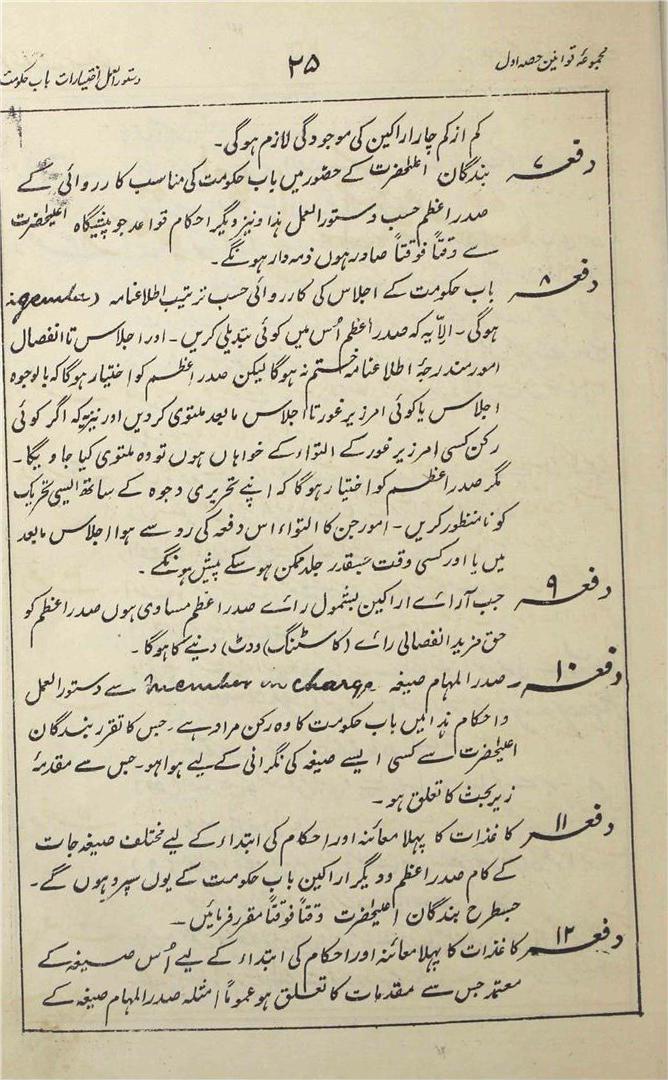 مجموعۂ قوانین حصہ اول
۲۵
دستورالعمل اختیارات باب حکومت
کم از کم چار اراکین کی موجودگی لازم ہوگی۔
دفعہ ۷ بندگان اعلیٰحضرت کے حضور میں باب حکومت کی مناسب کارروائی کے
صدر اعظم حسب دستورالعمل ہذا و نیز دیگر احکام قواعد جو پیشگاہ اعلیٰحضرت
سے وقتاً فوقتاً صادر ہوں ذمہ دار ہونگے۔
دفعہ ۸ باب حکومت کے اجلاس کی کارروائی حسب ترتیب اطلاعنامہ (
ہوگی۔ الّا یہ کہ صدر اعظم اُس میں کوئی تبدیلی کریں۔ اور اجلاس تا انفصال
امور مندرجۂ اطلاعنامہ ختم نہ ہوگا لیکن صدر اعظم کو اختیار ہوگا کہ بالوجوہ
اجلاس یا کوئی امر زیر غور تا اجلاس مابعد ملتوی کردیں اور نیز یہ کہ اگر کوئی
رکن کسی امر زیر غور کے التواء کے خواہاں ہوں تو وہ ملتوی کیا جاویگا۔
مگر صدر اعظم کو اختیار ہوگا کہ اپنے تحریری وجوہ کے ساتھ ایسی تحریک
کو نامنظور کریں۔ امور جن کا التواء اس دفعہ کی رو سے ہوا اجلاس مابعد
میں یا اور کسی وقت جسقدر جلد ممکن ہوسکے پیش ہونگے۔
دفعہ ۹ جب آرائے اراکین بشمول رائے صدر اعظم مساوی ہوں صدر اعظم کو
حق مزید انفصالی رائے (کاسٹنگ ووٹ) دنیے کا ہوگا۔
دفعہ ۱۰ ۔ صدر المہام صیغہ member in charge سے دستورالعمل
و احکام ہذا میں باب حکومت کا وہ رکن مراد ہے۔ جس کا تقرر بندگان
اعلیٰحضرت سے کسی ایسے صیغہ کی نگرانی کے لیے ہوا ہو۔ جس سے مقدمۂ
زیر بحث کا تعلق ہو۔
دفعہ ۱۱ کاغذات کا پہلا معائنہ اور احکام کی ابتداء کے لیے مختلف صیغہ جات
کے کام صدر اعظم و دیگر اراکین باب حکومت کے یوں سپرد ہوں گے۔
جسطرح بندگان اعلیٰحضرت وقتاً فوقتاً مقرر فرمائیں۔
دفعہ ۱۲ کاغذات کا پہلا معائنہ اور احکام کی ابتداء کے لیے اُس صیغہ کے
معتمد جس سے مقدمات کا تعلق ہو عموماً امثلہ صدر المہام صیغہ کے